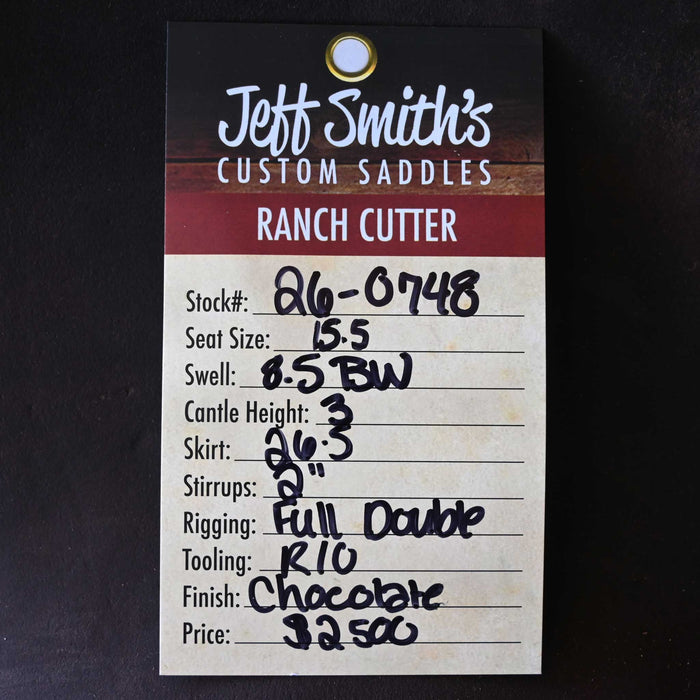 Jeff Smith's
CUSTOM SADDLES
RANCH CUTTER
Stock#: 26-0748
Seat Size: 15.5
Swell: 8.5 BW
Cantle Height: 3
Skirt: 26.5
Stirrups: 2"
Rigging: Full Double
Tooling: R10
Finish: Chocolate
Price: $2500